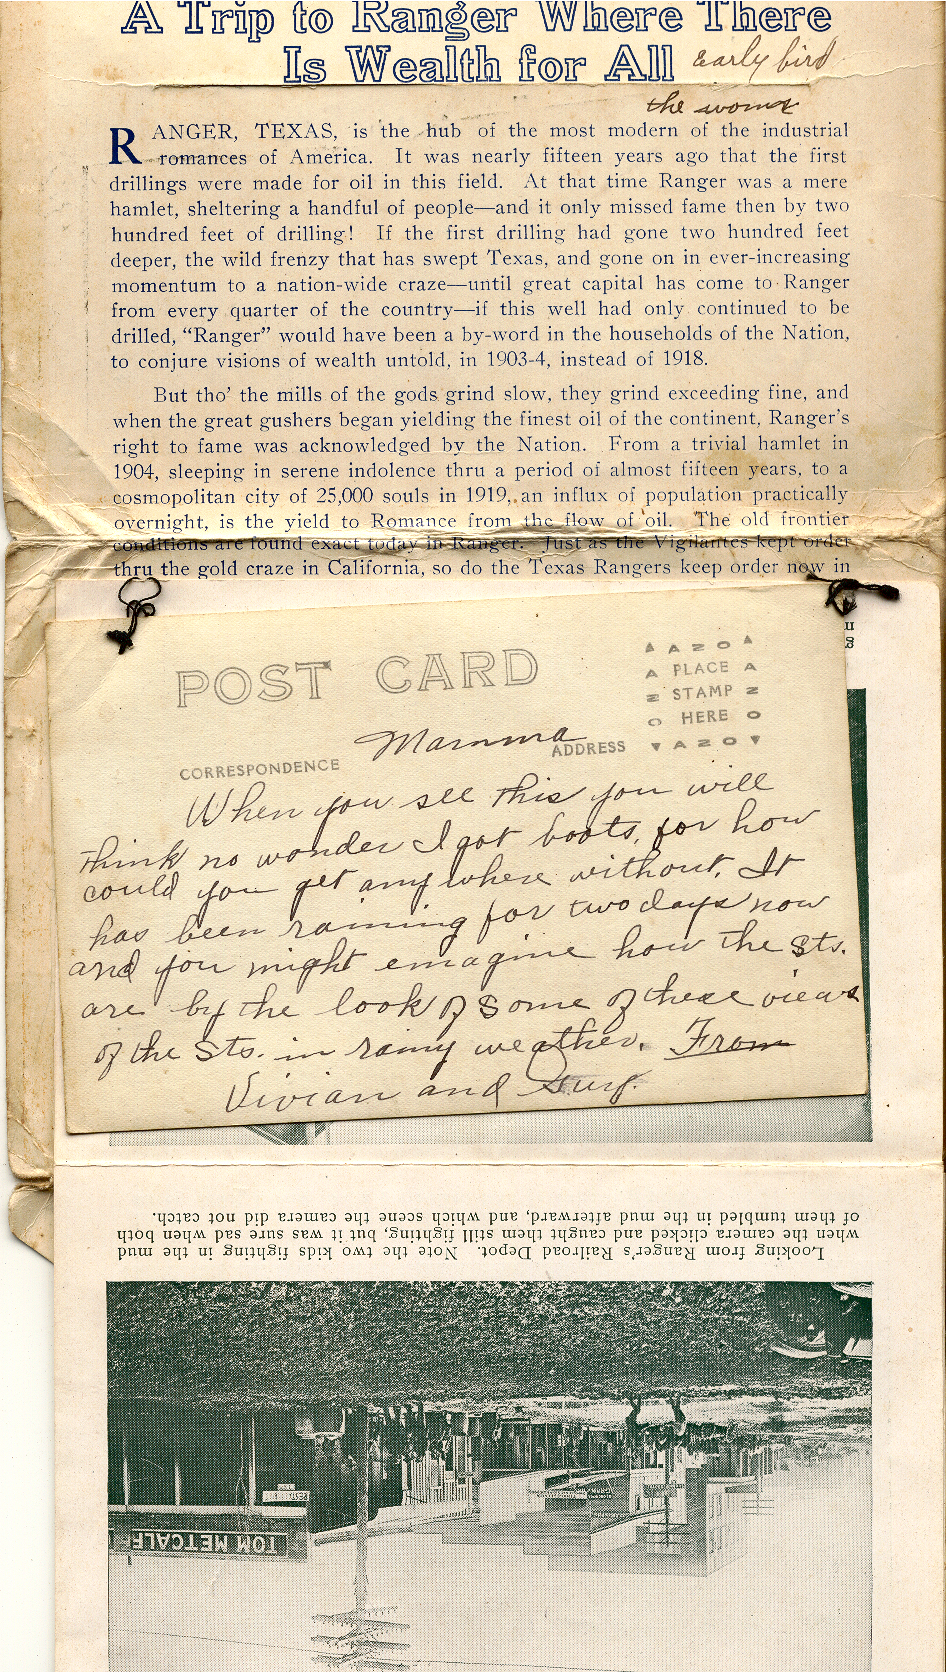 A Trip to Ranger Where There
Is Wealth for All early bird
the worm
RANGER, TEXAS, is the hub of the most modern of the industrial
romances of America. It was nearly fifteen years ago that the first
drillings were made for oil in this field. At that time Ranger was a mere
hamlet, sheltering a handful of people—and it only missed fame then by two
hundred feet of drilling! If the first drilling had gone two hundred feet
deeper, the wild frenzy that has swept Texas, and gone on in ever-increasing
momentum to a nation-wide craze—until great capital has come to Ranger
from every quarter of the country—if this well had only continued to be
drilled, “Ranger” would have been a by-word in the households of the Nation,
to conjure visions of wealth untold, in 1903-4, instead of 1918.
But tho’ the mills of the gods grind slow, they grind exceeding fine, and
when the great gushers began yielding the finest oil of the continent, Ranger’s
right to fame was acknowledged by the Nation. From a trivial hamlet in
1904, sleeping in serene indolence thru a period of almost fifteen years, to a
cosmopolitan city of 25,000 souls in 1919, an influx of population practically
overnight, is the yield to Romance from the flow of oil. The old frontier
conditions are found exact today in Ranger. Just as the Vigilantes kept order
thru the gold craze in California, so do the Texas Rangers keep order now in
POST CARD
AZO
PLACE
STAMP
HERE
AZO
CORRESPONDENCE
Mamma
ADDRESS
When you see this you will
think no wonder I got boots, for how
could you get any where without. It
has been raining for two days now
and you might emagine how the sts.
are by the look of some of these views
of the Sts. in rainy weather. From
Vivian and
Looking from Ranger's Railroad Depot. Note the two kids fighting in the mud
when the camera clicked and caught them still fighting, but it was sure sad when both
of them tumbled in the mud afterward, and which scene the camera did not catch.
RESTAURANT
TOM METCALF